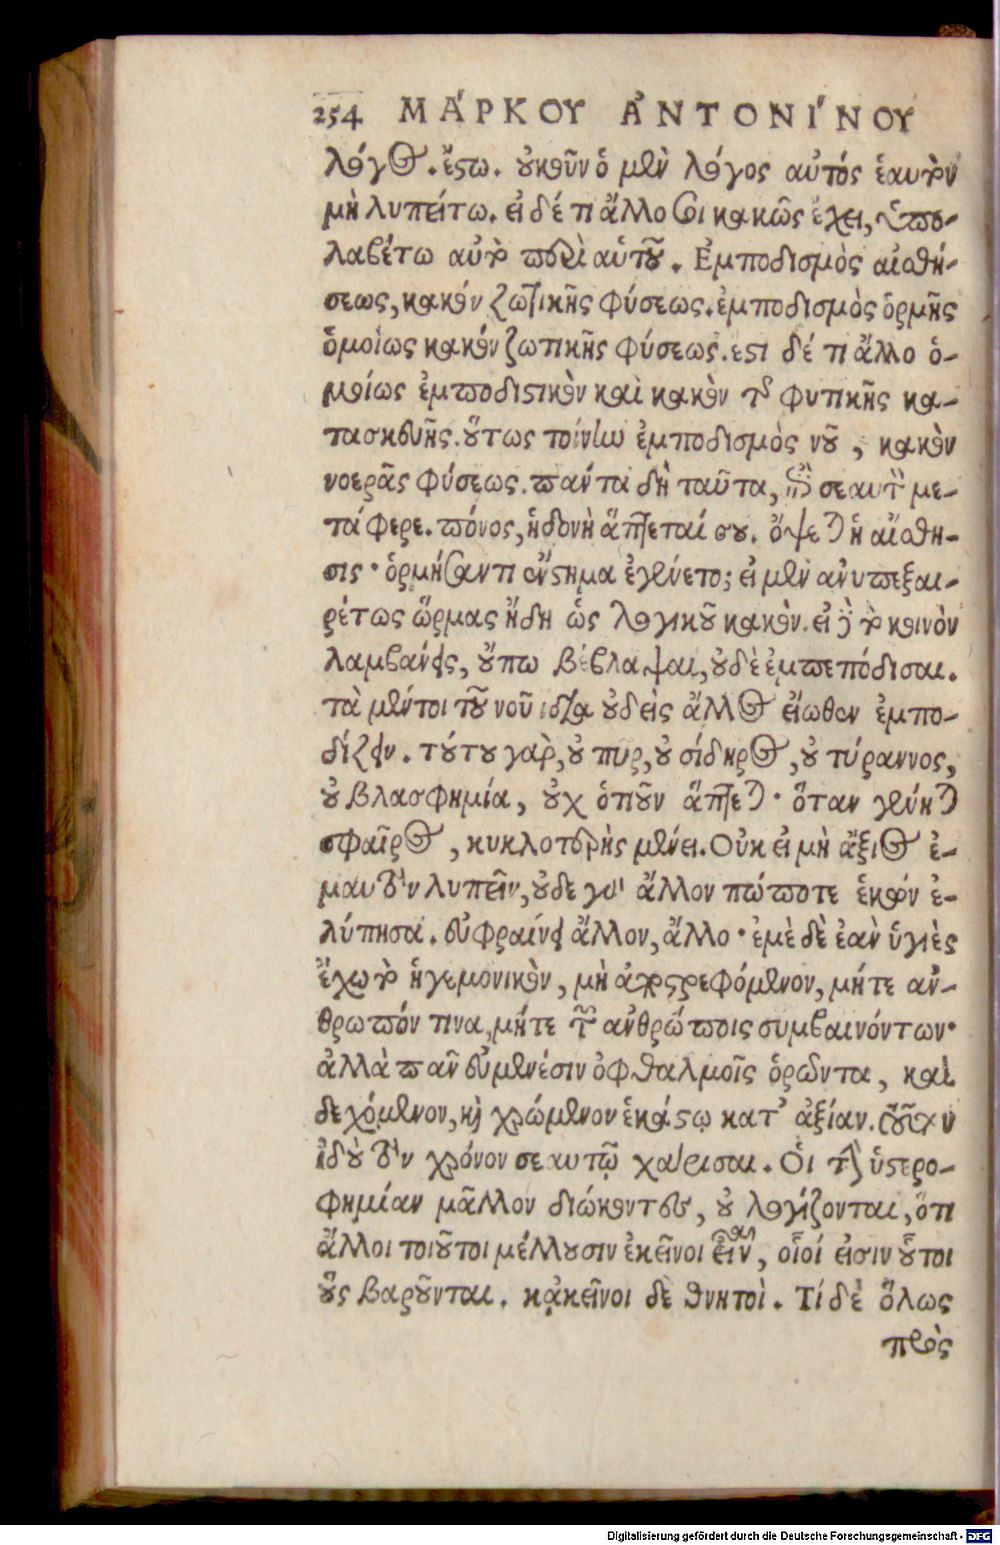 254 ΜΆΡΚΟΥ ἈΝΤΟΝΊΝΟΥ
λόγος. ἔστω. οὐκοῦν ὁ μὲν λόγος αὐτός ἑαυτὸν
μὴ λυπείτω. εἰ δέ τι ἄλλο σοι κακῶς ἔχει, ὑπο-
λαβέτω αὐτὸ περὶ αὑτοῦ. Ἐμποδισμὸς αἰσθή-
σεως, κακόν ζωτικῆς φύσεως. ἐμποδισμὸς ὁρμῆς
ὁμοίως κακόν ζωτικῆς φύσεως. ἐστι δέ τι ἄλλο ὁ-
μοίως ἐμποδιστικὸν καὶ κακὸν τῆς φυτικῆς κα-
τασκευῆς. οὕτως τοίνυν ἐμποδισμὸς νοῦ, κακὸν
νοερᾶς φύσεως. πάντα δὴ ταῦτα, ἐπὶ σεαυτὸν με-
τάφερε. πόνος, ἡδονὴ ἅπτεταί σου. ὄψεται ἡ αἴσθη-
σις· ὁρμήσαντι ἔνστημα ἐγένετο; εἰ μὲν ἀνυπεξαι-
ρέτως ὥρμας ἤδη ὡς λογικοῦ κακὸν. εἰ δὲ τὸ κοινὸν
λαμβάνεις, οὔπω βέβλαψαι, οὐδὲ ἐμπεπόδισαι.
τὰ μέντοι τοῦ νοῦ ἴδια οὐδεὶς ἄλλος εἴωθεν ἐμπο-
δίζειν. τούτου γὰρ, οὐ πυρ, οὐ σίδηρος, οὐ τύραννος,
οὐ βλασφημία, οὐχ ὁτιοῦν ἅπτεται· ὅταν γένηται
σφαῖρος, κυκλοτερὴς μένει. Οὐκ εἰ μὴ ἄξιος ἐ-
μαυτὸν λυπεῖν, οὐδε γὰρ ἄλλον πώποτε ἑκὼν ἐ-
λύπησα. εὐφραίνει ἄλλον, ἄλλο· ἐμὲ δὲ ἐὰν ὑγιὲς
ἔχω τὸ ἡγεμονικὸν, μὴ ἀποστρεφόμενον, μήτε ἄν-
θρωπόν τινα, μήτε τῶν ἀνθρώποις συμβαινόντων·
ἀλλὰ πᾶν εὐμενέσιν ὀφθαλμοῖς ὁρῶντα, καὶ
δεχόμενον, καὶ χρώμενον ἑκάστῳ κατ' ἀξίαν. τοῦτον
ἰδοὺ τὸν χρόνον σεαυτῷ χάρισαι. Οἱ τὴν ὑστερο-
φημίαν μᾶλλον διώκοντες, οὐ λογίζονται, ὅτι
ἄλλοι τοιοῦτοι μέλλουσιν ἐκεῖνοι εἶναι, οἷοί εἰσιν οὗτοι
οὓς βαροῦνται. κἀκεῖνοι δὲ θνητοὶ. Τί δὲ ὅλως
πρὸς
Digitalisierung gefördert durch die Deutsche Forschungsgemeinschaft - DFG